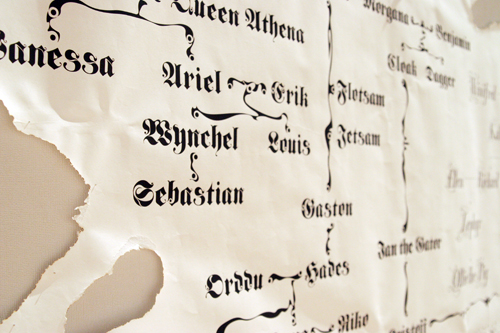 Queen Athena
Morgana
Benjamin
Vanessa
Cloak Dagger
Ariel
Erik
Flotsam
Wynchel
Louis
Jetsam
Sebastian
Gaston
Jan the Gator
Orddu
Hades
Niko